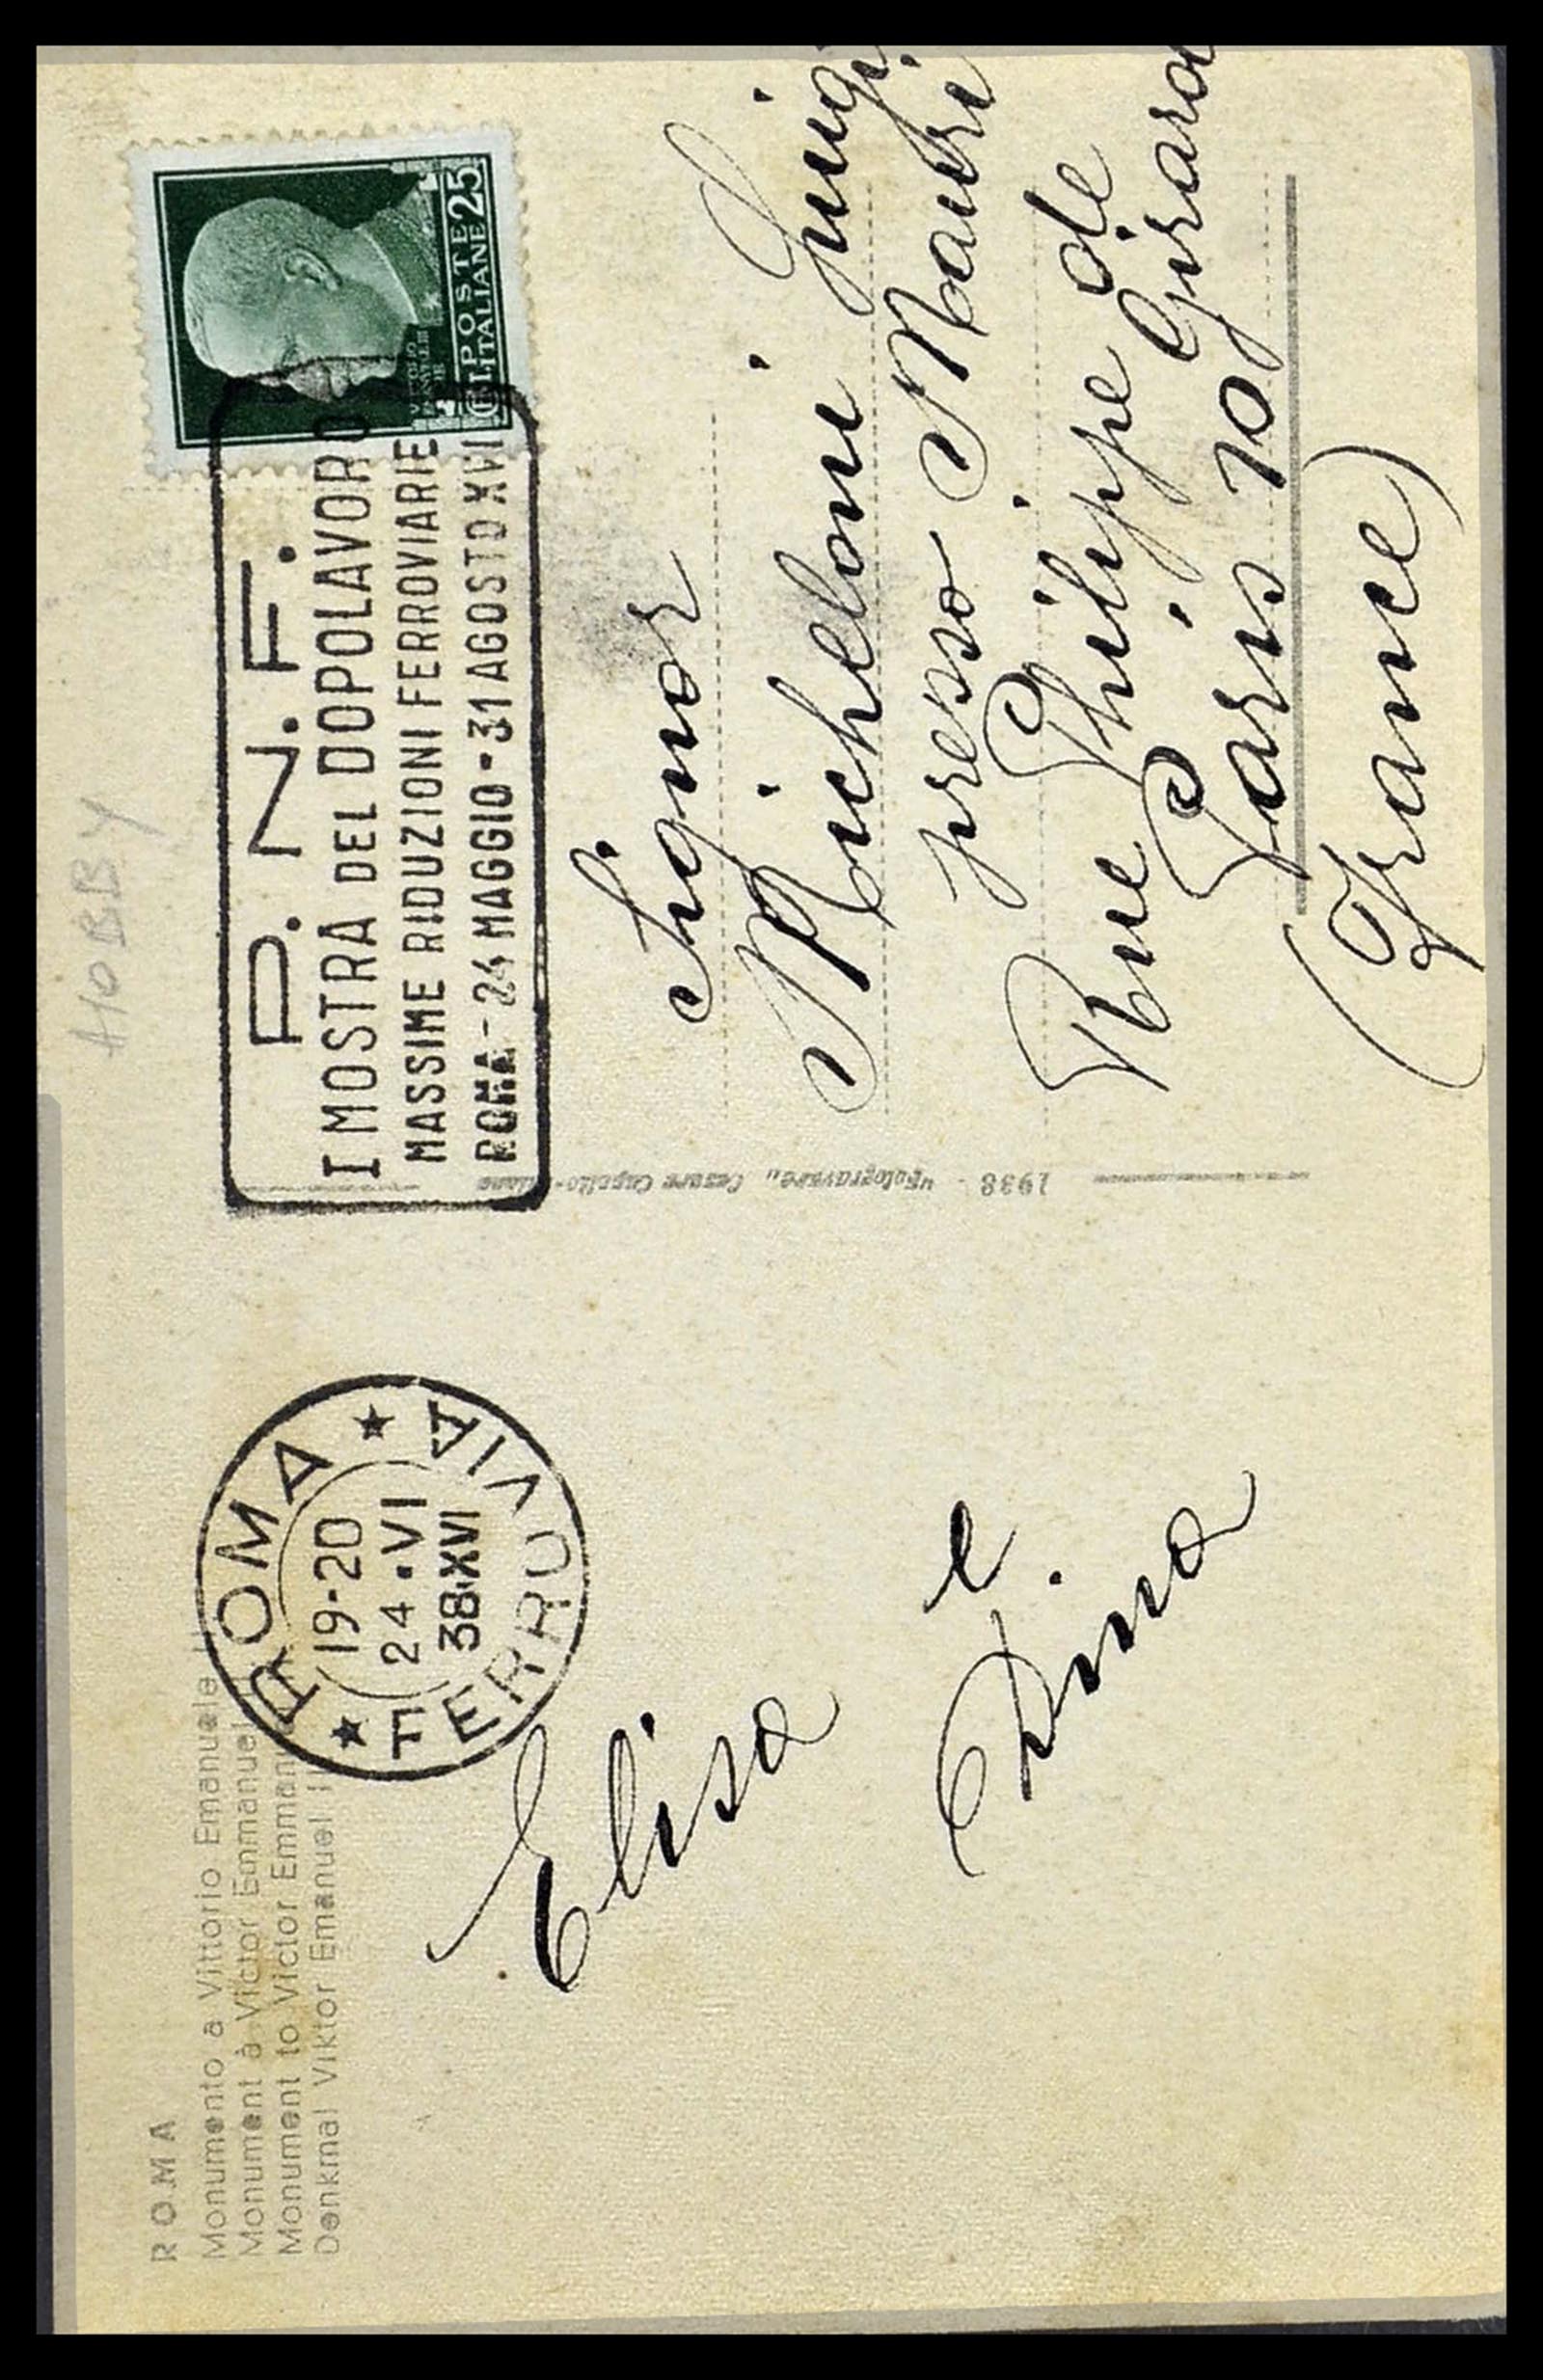 HOBBY
ROMA
Monumento a Vittorio Emanuele
Monument à Victor Emmanuel
Monument to Victor Emmanuel
Denkmal Viktor Emanuel II
ROMA
19-20
24·VI
38·XVI
FERROVIA
P. N. F.
I MOSTRA DEL DOPOLAVORO
MASSIME RIDUZIONI FERROVIARIE
ROMA-24 MAGGIO-31 AGOSTO XVI
POSTE
ITALIANE 25
Elisa
e
Pina
1938 - "Fotogravure" Cesare Capello-Milano
Signor
Micheloni Luigi
presso Mauri
Rue Philippe de
Paris 10 Girard
(France)